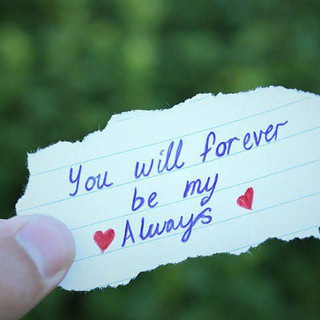 You will forever
be my
Always